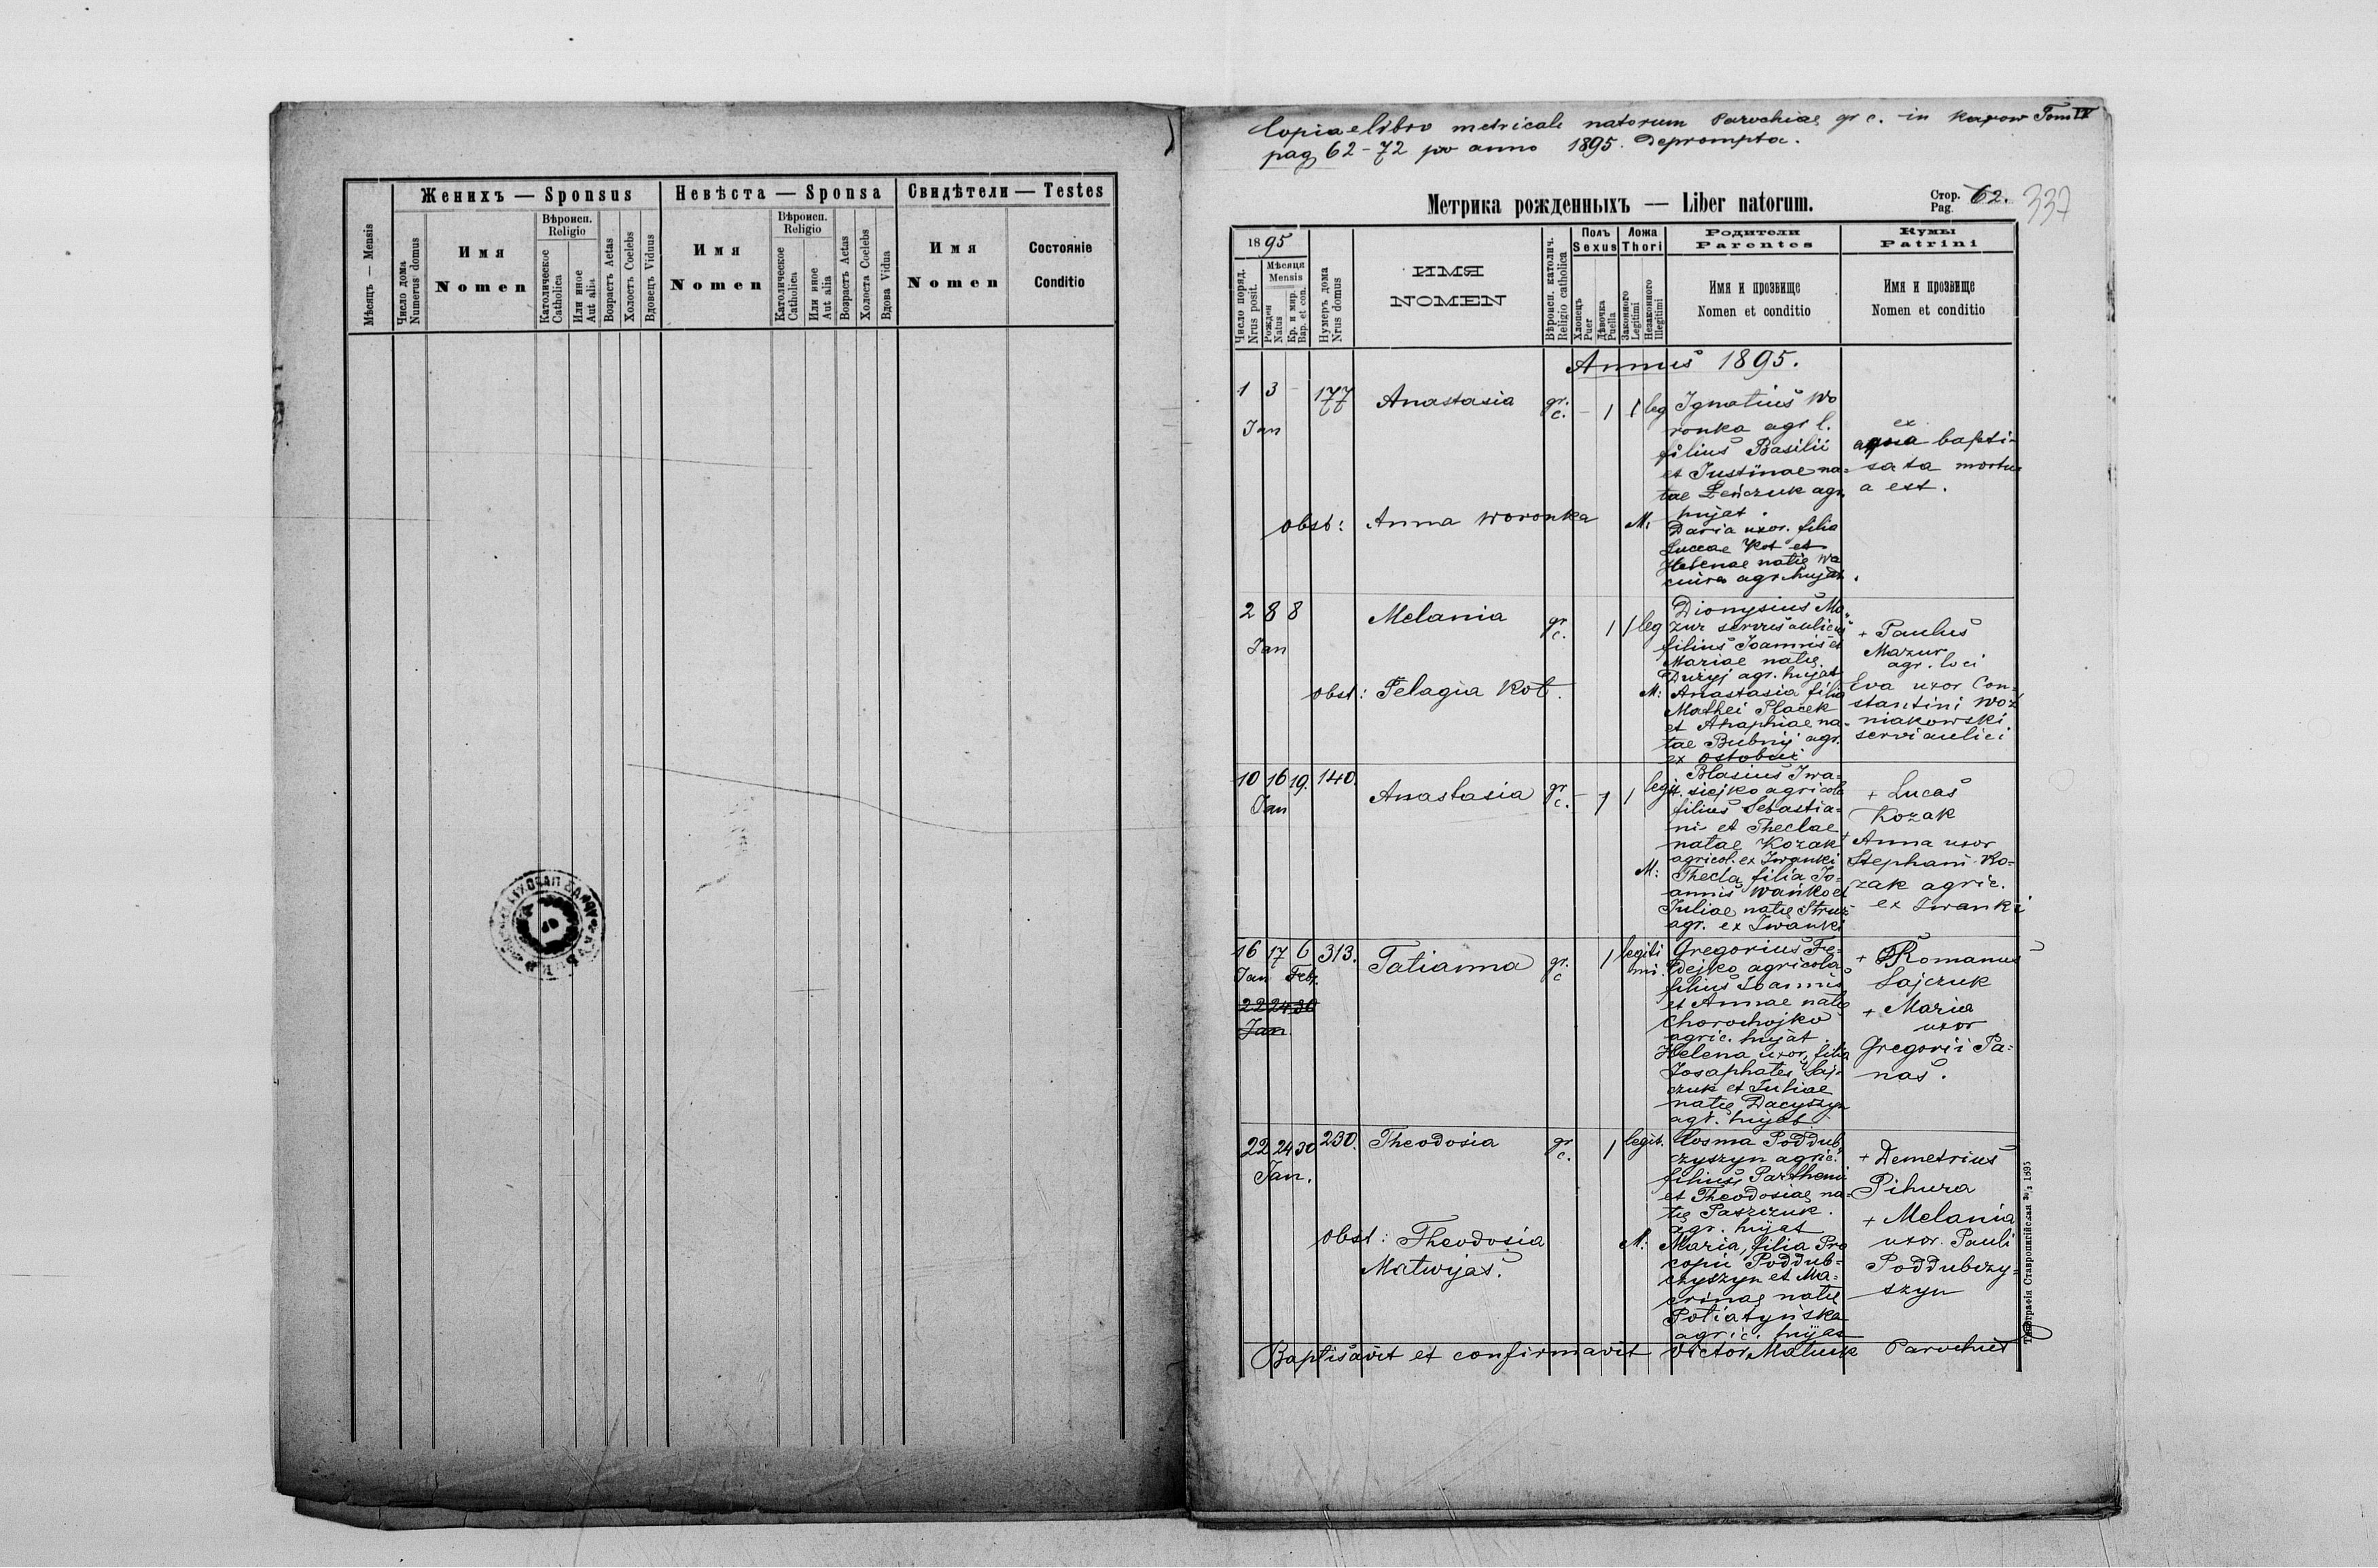 Женихъ — Sponsus
Невѣста — Sponsa
Свидѣтели — Testes
Мѣсяцъ — Mensis
Число дома
Numerus domus
Имя
Nomen
Вѣроисп.
Religio
Католическое
Catholica
Или иное
Aut alia
Возрастъ Aetas
Холостъ Coelebs
Вдовецъ Viduus
Имя
Nomen
Вѣроисп.
Religio
Католическое
Catholica
Или иное
Aut alia
Возрастъ Aetas
Холоста Coelebs
Вдова Vidua
Имя
Nomen
Состояніе
Conditio
Copia e libro metricali natorum Parochiae gr c. in Karow Tom IV
pag 62-72 pro anno 1895. Deprompta.
Метрика рожденныхъ — Liber natorum.
Стор.
Pag.
62.
337
1895
Число поряд.
Nrus posit.
Мѣсяця
Mensis
Рожден
Natus
Кр. и мир.
Bap. et con.
Нумеръ дома
Nrus domus
ИМЯ
NOMEN
Вѣроисп. католич.
Religio catholica
Полъ
Sexus
Хлопецъ
Puer
Дѣвочка
Puella
Ложа
Thori
Законного
Legitimi
Незаконного
Illegitimi
Родители
Parentes
Имя и прозвище
Nomen et conditio
Кумы
Patrini
Имя и прозвище
Nomen et conditio
Annus 1895.
1 3 - 177 Anastasia gr. c. - 1 1 leg
Jan
Ignatius Wo
ronka agr l.
filius Basilii
et Justinae na-
tae Leńczuk agr
hujat.
M: Daria uxor. filia
Luccae Kot et
Helenae natae Wa
agr. hujat.
ex
aqua bapti-
sata mortu
a est.
obst: Anna Woronka
2 8 8 Melania gr c. 1 1 leg
Jan
Dionysius Ma-
zur servus aulicus
filius Joannis et
Mariae natae
Duzyj agr. hujat
M: Anastasia filia
Mathei Placek
et Ahaphiae na-
tae Bubnij agr.
ex Ostobuż
+ Paulus
Mazur
agr. loci
Eva uxor Con-
stantini Woz
niakowski
servi aulici
obst: Pelagia Kot.
10 16 19. 140. Anastasia gr c. - 1 1 legit.
Jan
Blasius Iwa-
siejko agricola
filius Sebastia-
ni et Theclae
natae Kozak
agricol. ex Iwanki
M: Thecla filia Jo-
annis Wańko et
Juliae natae
agr. ex Iwanki
+ Lucas
Kozak
+ Anna uxor
Stephani Ko-
zak agric.
ex Iwanki
16 17 6 313. Tatianna gr. c 1 legiti
Jan Febr. mi.
22 24 30
Jan
Gregorius Fe-
dejko agricola
filius Joannis
et Annae natae
Chorochojko
agric. hujat.
Helena uxor, filia
Josaphates Saj-
czuk et Juliae
natae Dacyszyn
agr. hujat
+ Romanus
Sajczuk
+ Maria
uxor
Gregorii Pa-
nas.
22 24 30 230. Theodosia gr c. 1 legit.
Jan.
Cosma Poddub
czyszyn agric.
filius Parthenii
et Theodosiae na-
tae Paszczuk.
agr. hujat
M: Maria, filia Pro
copii Poddub-
czyszyn et Ma-
crinae natae
Potiatyńska
agric. hujat
+ Demetrius
Pihura
+ Melania
uxor Pauli
Poddubczy-
szyn
obst: Theodosia
Matwijas.
Baptisavit et confirmavit Victor Matiuk Parochus